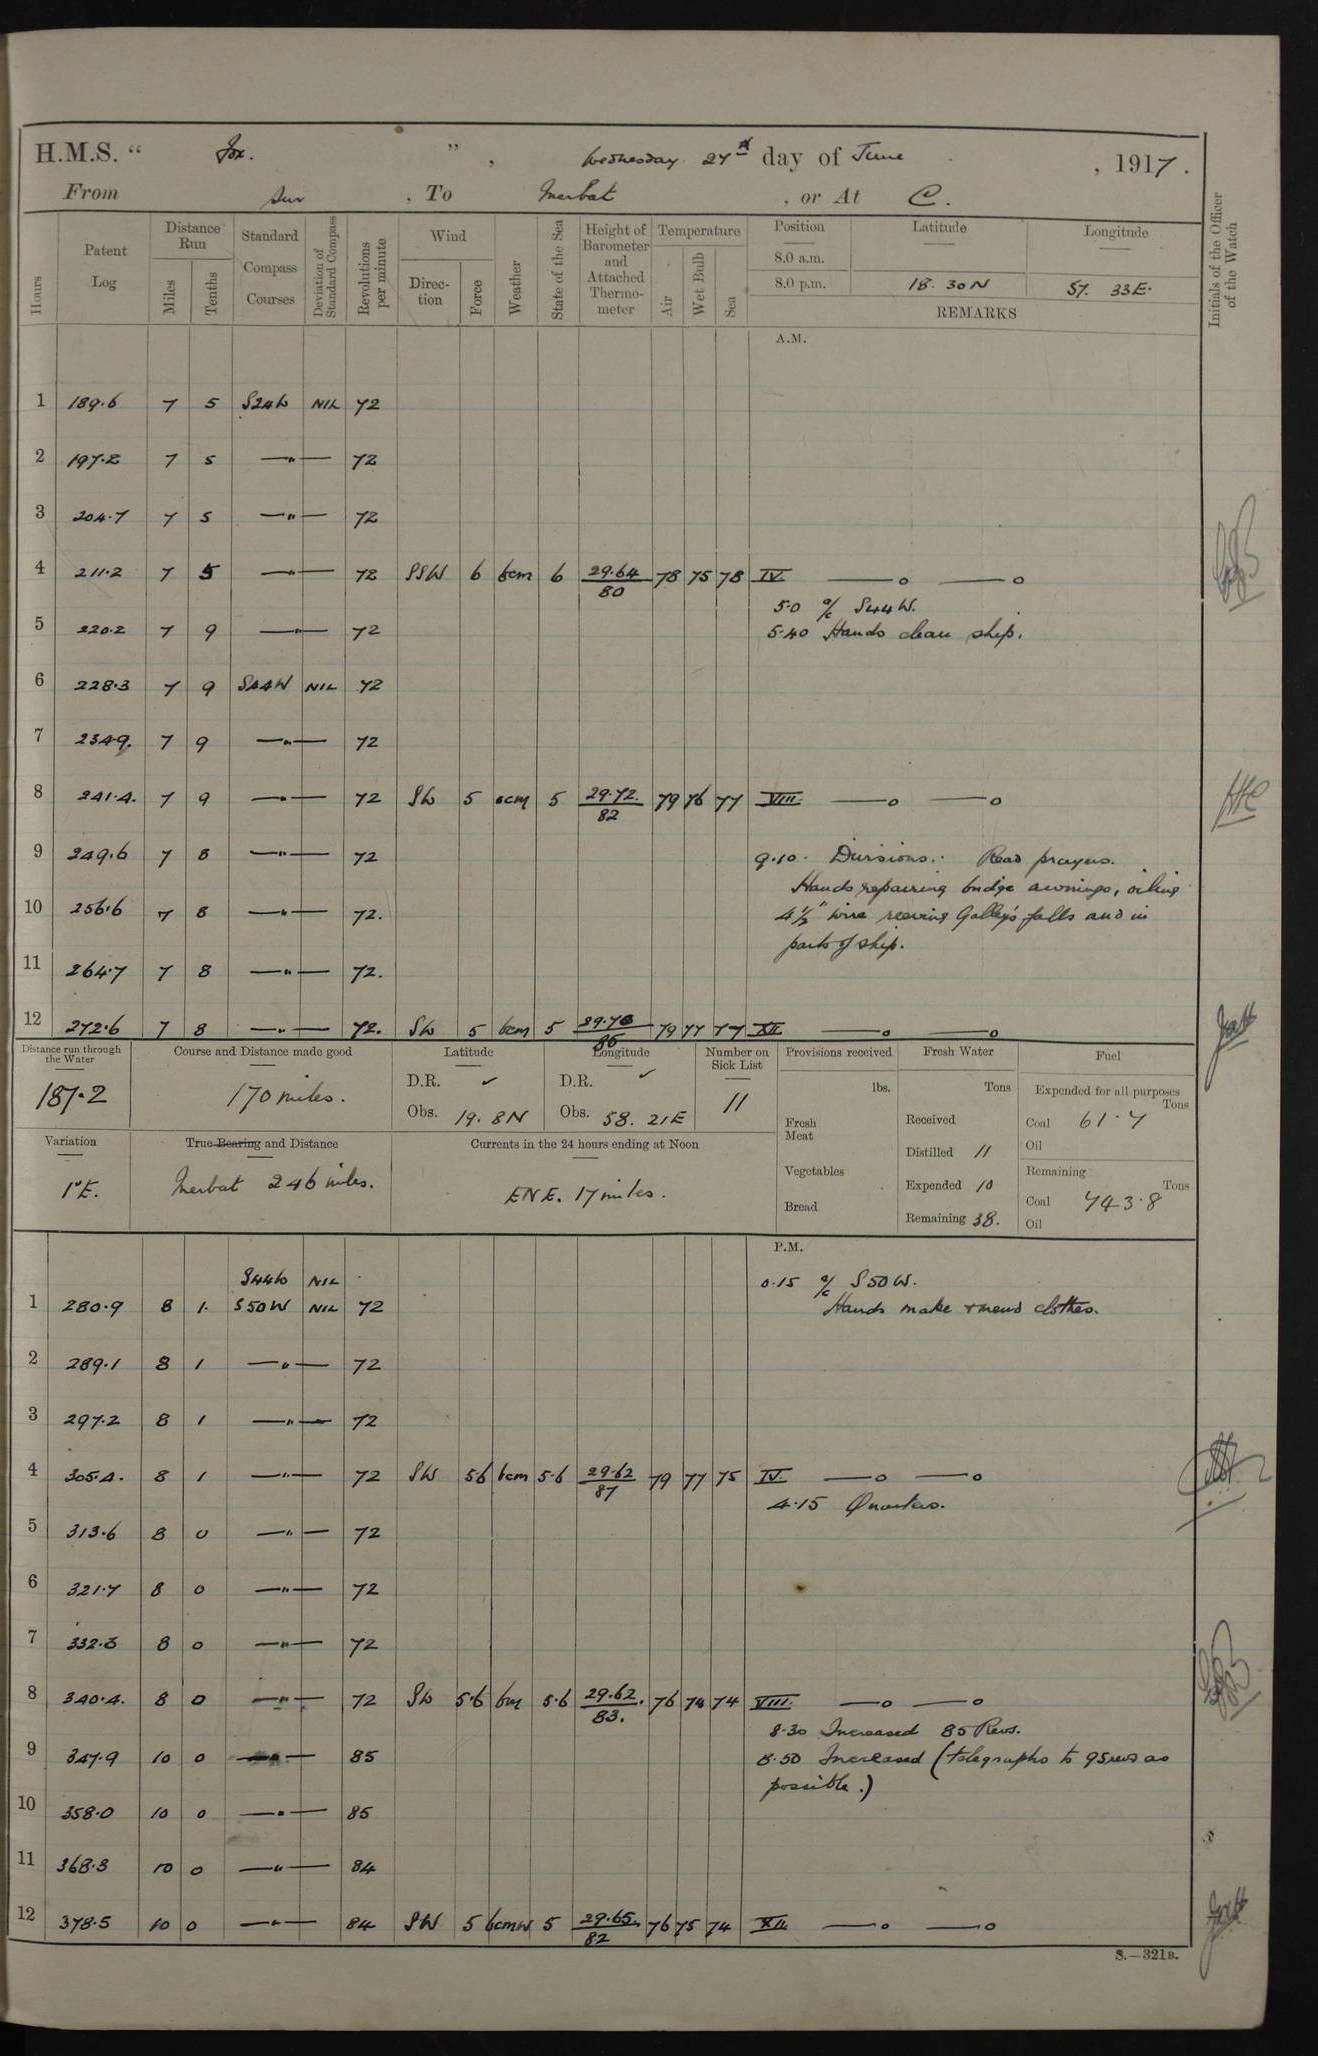 H.M.S. “ Fox. ” , Wednesday 27th day of June , 1917.
From Sur , To Merbat , or At C.
Hours
Patent Log
Distance Run
Miles
Tenths
Standard Compass Courses
Deviation of Standard Compass
Revolutions per minute
Wind
Direction
Force
Weather
State of the Sea
Height of Barometer and Attached Thermometer
Temperature
Air
Wet Bulb
Sea
Position
8.0 a.m.
8.0 p.m.
Latitude
18. 30 N
Longitude
57. 33 E.
REMARKS
Initials of the Officer of the Watch
A.M.
1 189.6 7 5 S24W NIL 72
2 197.2 7 5 —"— 72
3 204.7 7 5 —"— 72
4 211.2 7 5 —"— 72 SSW 6 bcm 6 29.64/80 78 75 78 IV —o —o
5.0 a/c S44W.
5 220.2 7 9 —"— 72 5.40 Hands clean ship.
6 228.3 7 9 S44W NIL 72
7 234.9. 7 9 —"— 72
8 241.4. 7 9 —"— 72 SW 5 ocm 5 29.72./82 79 76 77 VIII. —o —o
9 249.6 7 8 —"— 72 9.10. Divisions. Read prayers.
Hands repairing bridge awnings, oiling
10 256.6 7 8 —"— 72. 4½" wire reeving Galley's falls and in
parts of ship.
11 264.7 7 8 —"— 72.
12 272.6 7 8 —"— 72. SW 5 bcm 5 29.76/86 79 77 77 XII —o —o
Distance run through the Water
187.2
Course and Distance made good
170 miles.
Latitude
D.R. ✓
Obs. 19. 8 N
Longitude
D.R. ✓
Obs. 58. 21 E
Number on Sick List
11
Variation
1°E.
True Bearing and Distance
Merbat 246 miles.
Currents in the 24 hours ending at Noon
ENE. 17 miles.
Provisions received
lbs.
Fresh Meat
Vegetables
Bread
Fresh Water
Tons
Received
Distilled 11
Expended 10
Remaining 38.
Fuel
Expended for all purposes
Tons
Coal 61.7
Oil
Remaining
Tons
Coal 743.8
Oil
P.M.
S44W NIL 0.15 a/c S50W.
1 280.9 8 1. S50W NIL 72 Hands make & mend clothes.
2 289.1 8 1 —"— 72
3 297.2 8 1 —"— 72
4 305.4. 8 1 —"— 72 SW 5.6 bcm 5.6 29.62/87 79 77 75 IV —o —o
4.15 Quarters.
5 313.6 8 0 —"— 72
6 321.7 8 0 —"— 72
7 332.3 8 0 —"— 72
8 340.4. 8 0 —"— 72 SW 5.6 bm 5.6 29.62./83. 76 74 74 VIII. —o —o
8.30 Increased 85 Revs.
9 347.9 10 0 —"— 85 8.50 Increased (telegraphs to 95 revs as
possible.)
10 358.0 10 0 —"— 85
11 368.3 10 0 —"— 84
12 378.5 10 0 —"— 84 SW 5 bcmw 5 29.65./82 76 75 74 XII —o —o
S.—321B.